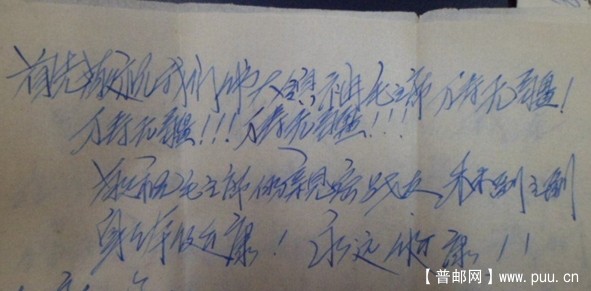 首先敬祝我们伟大领袖毛主席万寿无疆!
万寿无疆!!!万寿无疆!!!
敬祝毛主席的亲密战友林副主席
身体健康!永远健康!!
【普邮网】www.puu.cn